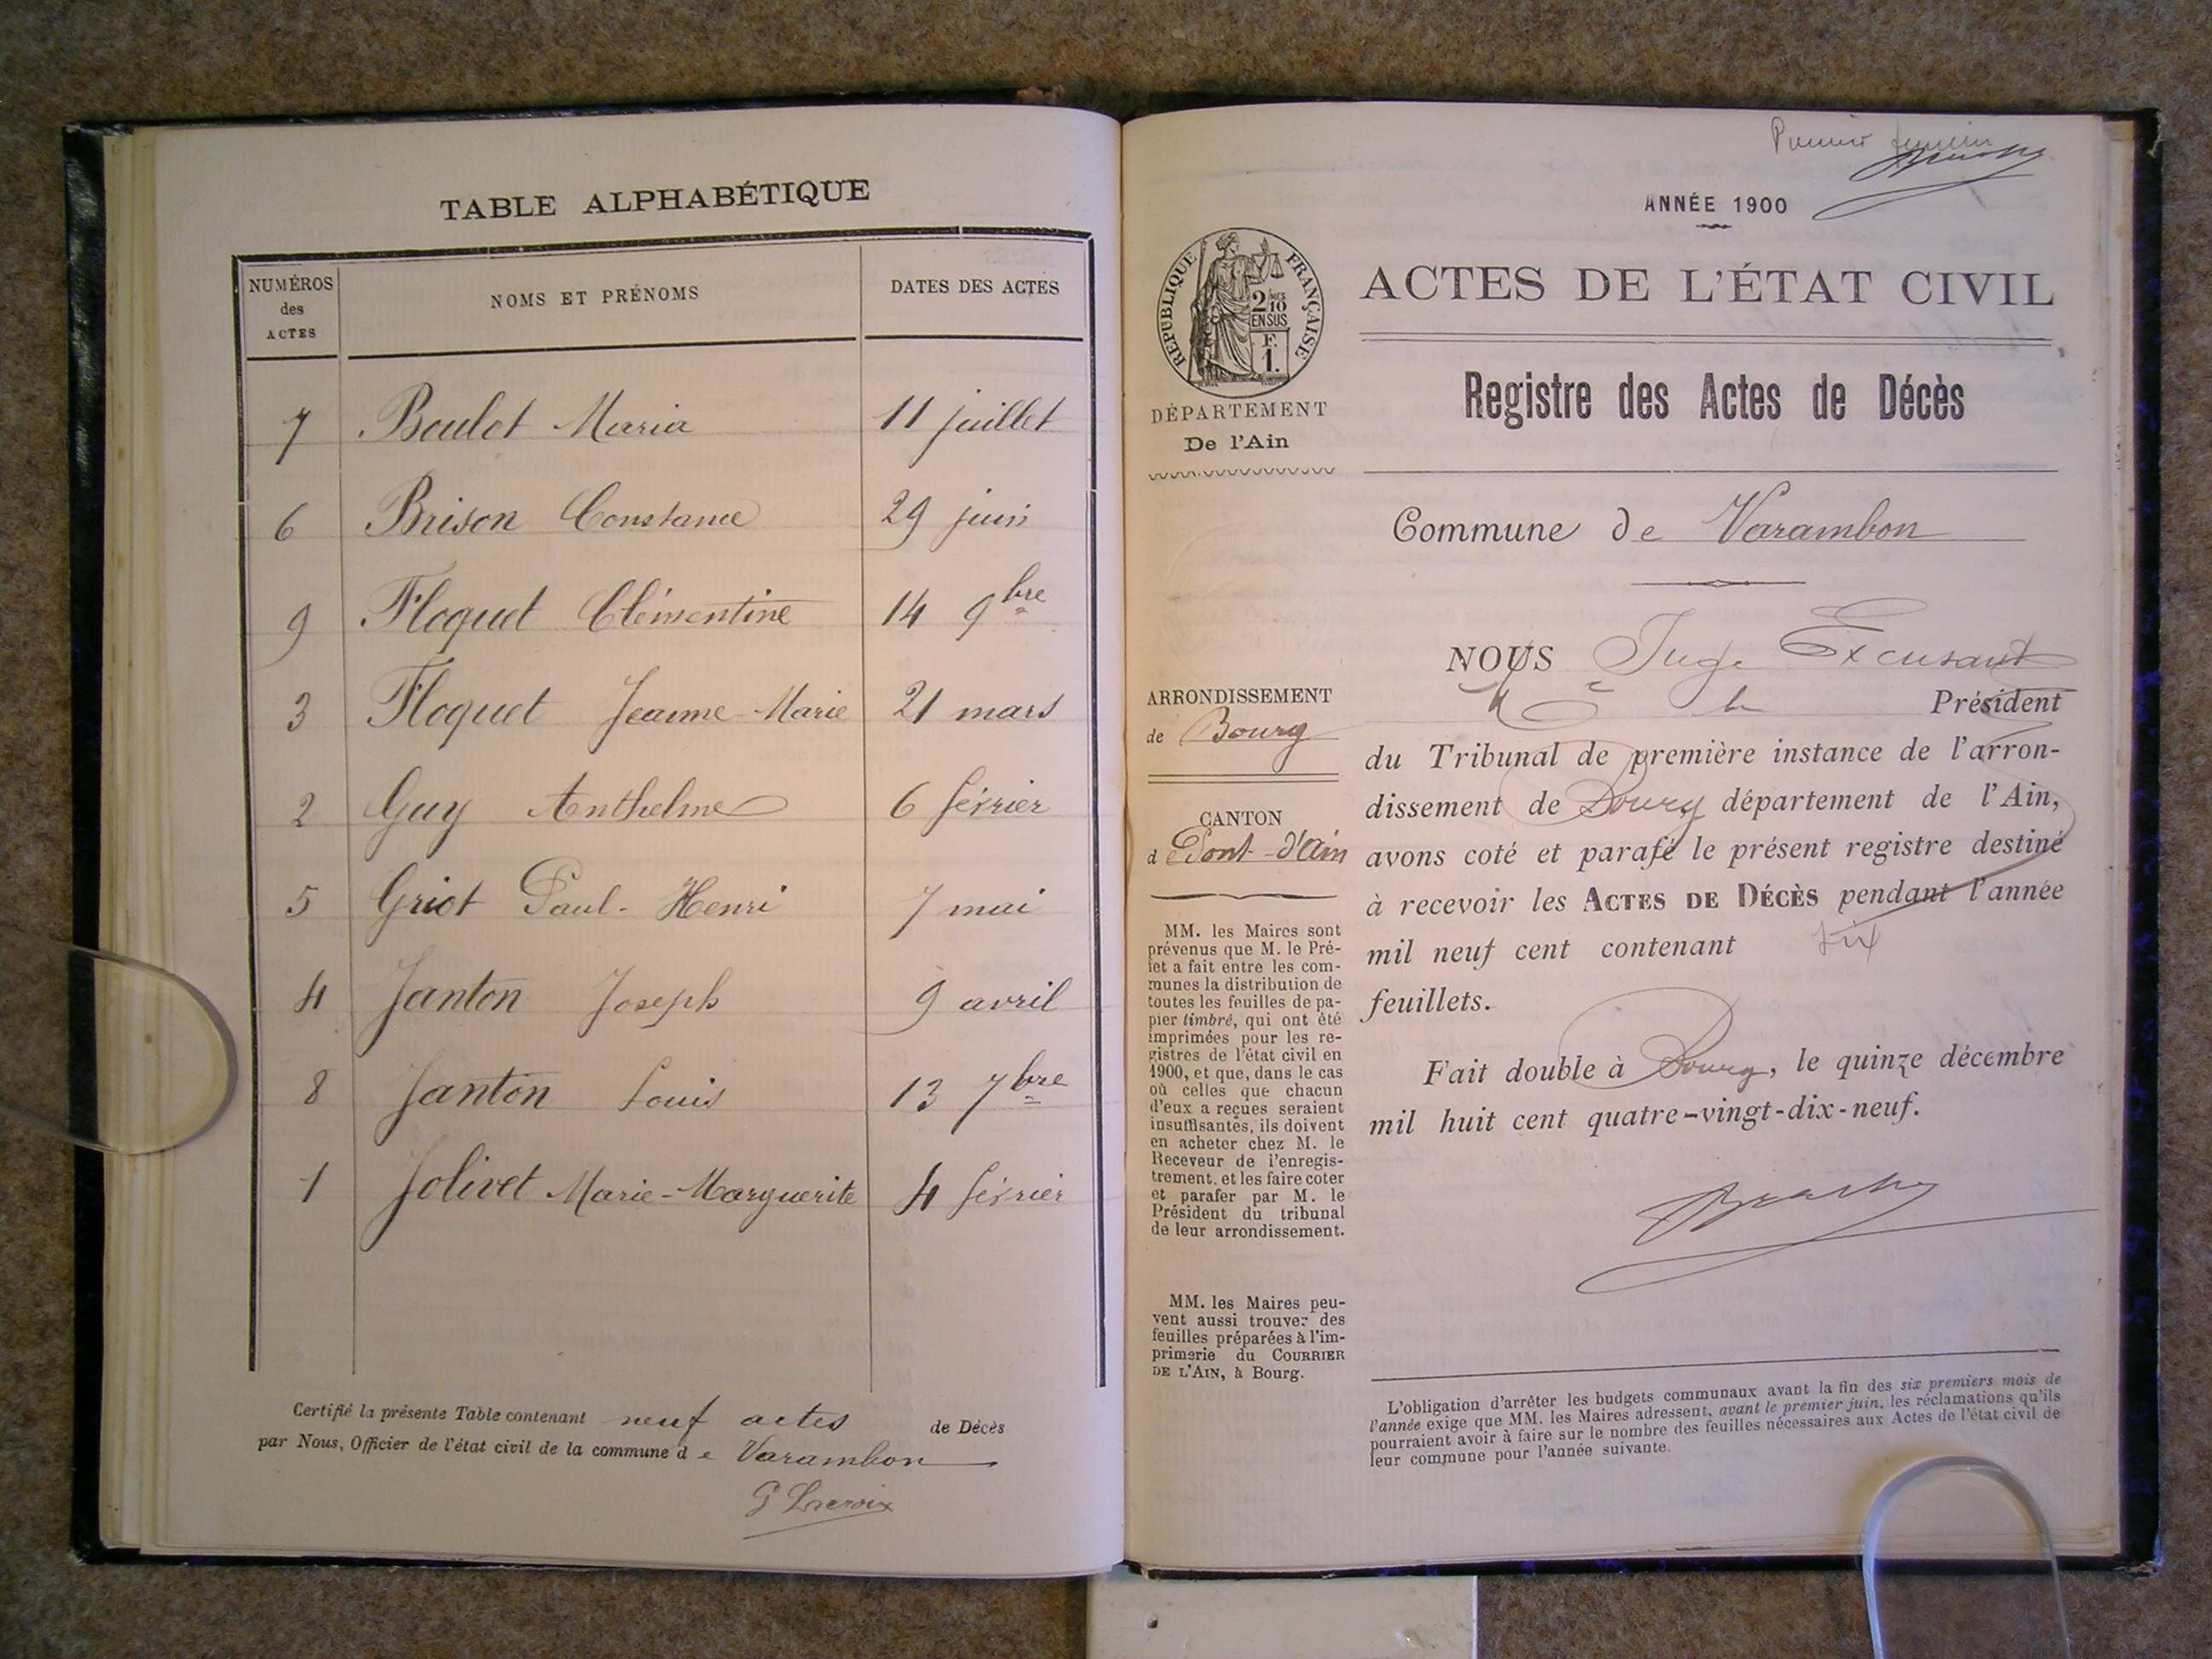 TABLE ALPHABÉTIQUE
NUMÉROS des ACTES NOMS ET PRÉNOMS DATES DES ACTES
7 Boulot Maria 11 juillet
6 Brison Constance 29 juin
9 Floquet Clémentine 14 9bre
3 Floquet Jeanne-Marie 21 mars
2 Guy Anthelme 6 février
5 Griot Paul-Henri 7 mai
4 Janton Joseph 9 avril
8 Janton Louis 13 7bre
1 Jolivet Marie-Marguerite 4 février
Certifié la présente Table contenant neuf actes de Décès
par Nous, Officier de l'état civil de la commune de Varambon
G Lacroix
Premier
ANNÉE 1900
RÉPUBLIQUE FRANÇAISE
2/10 EN SUS
F. 1.
DÉPARTEMENT
De l'Ain
ARRONDISSEMENT
de Bourg
CANTON
de Pont-d'Ain
MM. les Maires sont
prévenus que M. le Pré-
fet a fait entre les com-
munes la distribution de
toutes les feuilles de pa-
pier timbré, qui ont été
imprimées pour les re-
gistres de l'état civil en
1900, et que, dans le cas
où celles que chacun
d'eux a reçues seraient
insuffisantes, ils doivent
en acheter chez M. le
Receveur de l'enregis-
trement, et les faire coter
et parafer par M. le
Président du tribunal
de leur arrondissement.
MM. les Maires peu-
vent aussi trouver des
feuilles préparées à l'im-
primerie du COURRIER
DE L'AIN, à Bourg.
ACTES DE L'ÉTAT CIVIL
Registre des Actes de Décès
Commune de Varambon
NOUS Juge
le Président
du Tribunal de première instance de l'arron-
dissement de Bourg département de l'Ain,
avons coté et parafé le présent registre destiné
à recevoir les ACTES DE DÉCÈS pendant l'année
mil neuf cent contenant six
feuillets.
Fait double à Bourg, le quinze décembre
mil huit cent quatre-vingt-dix-neuf.
L'obligation d'arrêter les budgets communaux avant la fin des six premiers mois de
l'année exige que MM. les Maires adressent, avant le premier juin, les réclamations qu'ils
pourraient avoir à faire sur le nombre des feuilles nécessaires aux Actes de l'état civil de
leur commune pour l'année suivante.